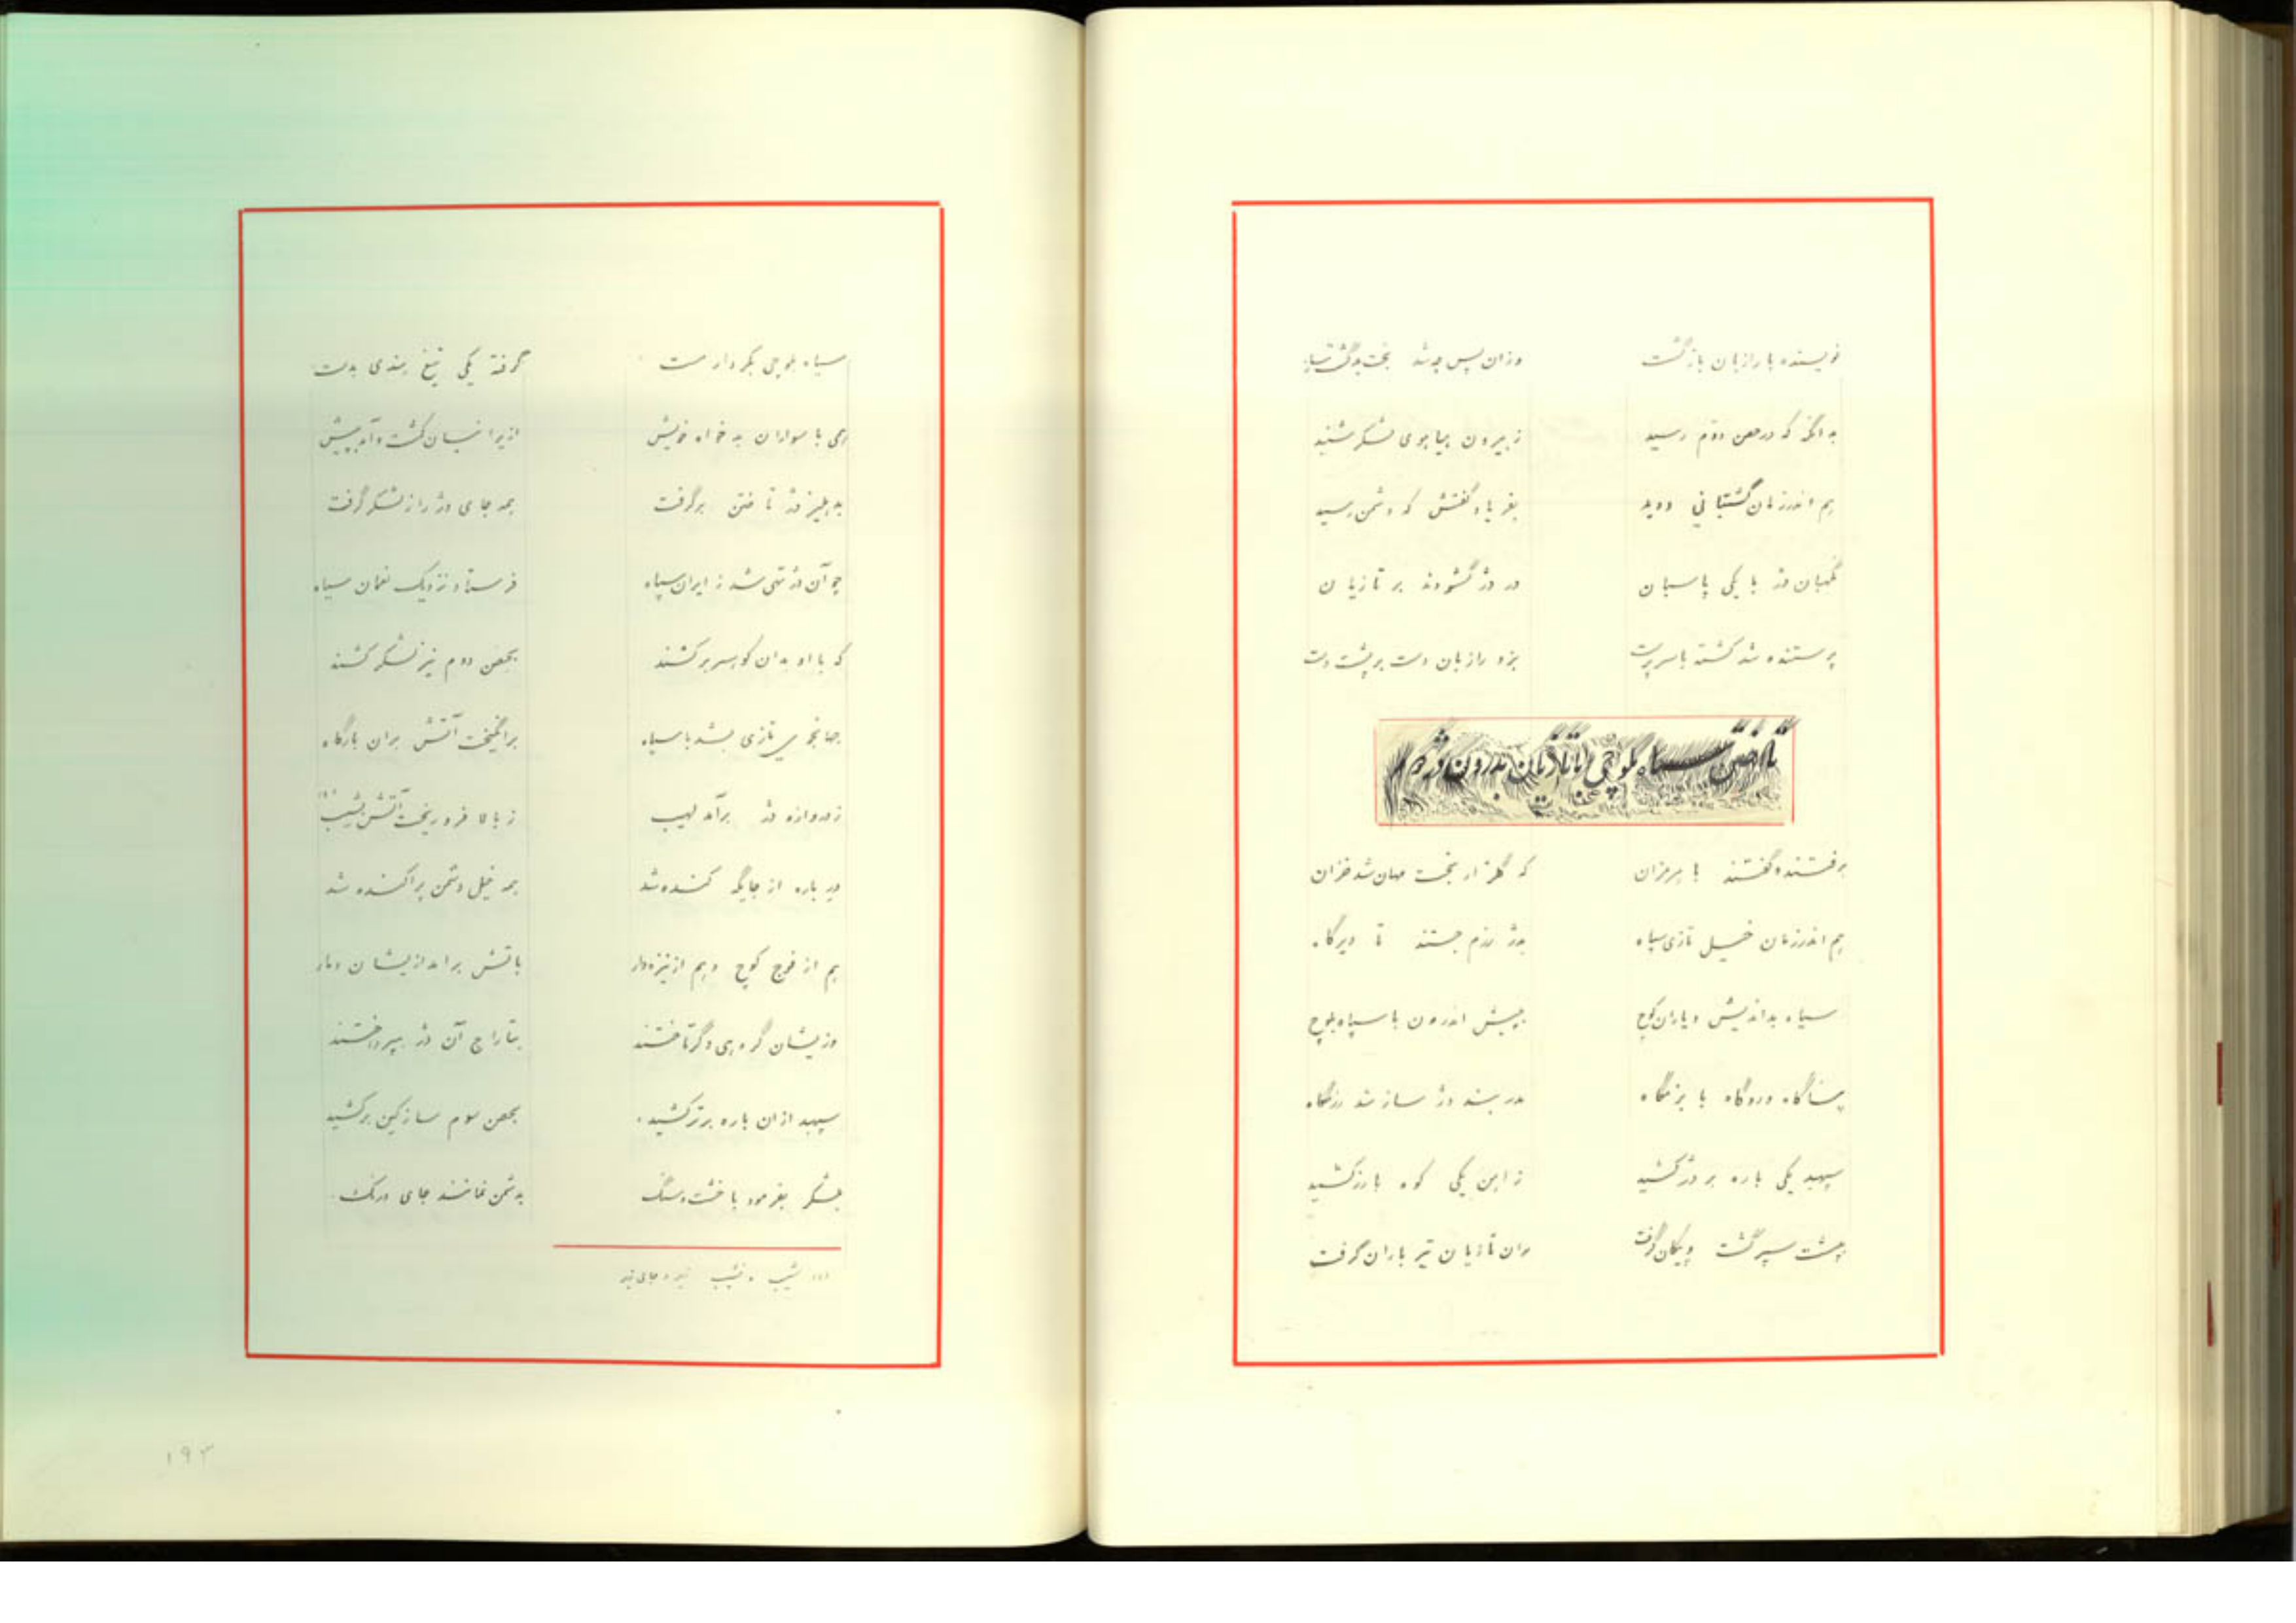 نویسنده با رازبان بازگشت وزان پس چه شد بخت بدگشت
بدانگه که در حصن دوّم رسید ز بیرون هیاهوی لشکر شنید
هم اندر زمان گشتبانی دوید بفریاد گفتش که دشمن رسید
نگهبان دژ با یکی پاسبان در دژ گشودند بر تازیان
پرستنده شد کشته با سرپرست بزد رازبان دست بر پشت دست
تاختن سیاه بلوچی با تازیان بدرون دژ
برفتند و گفتند با هرمزان که گلزار بخت مهان شد خزان
هم اندر زمان خیل تازی سپاه بدژ رزم جستند تا دیرگاه
سیاه بداندیش و یاران کوچ بپیش اندرون با سپاه بلوچ
پناگاه ورودگاه با بزمگاه بدربند دژ ساز شد رزمگاه
سپهبد یکی باره بر دژ کشید ز آهن یکی کوه بارز کشید
بپشت سپر گشت و پیکان گرفت بران تازیان تیر باران گرفت
سیاه بلوچی بکردار مست گرفته یکی تیغ هندی بدست
همی با سواران بدخواه خویش از ایرانیان کشت و آمد بپیش
بدهلیز دژ تاختن برگرفت همه جای دژ را ز لشکر گرفت
چو آن دژ تهی شد ز ایران سپاه فرستاد نزدیک نعمان سیاه
که با او بدان کوه سر برکشند بحصن دوم نیز لشکر کشند
جهانجوی تازی بشد با سپاه برانگیخت آتش بران بارگاه
ز دروازه دژ برآمد لهیب ز بالا فرو ریخت آتش بشیب (۱)
در باره از جایگه کنده شد همه خیل دشمن پراکنده شد
هم از فوج کوچ و هم از نیزه‌دار باتش برآمد ازیشان دمار
وزیشان گروهی دگر تاختند بتاراج آن دژ بپرداختند
سپهبد ازان باره برتر کشید بحصن سوم ساز کین برکشید
بلشکر بفرمود با خشت و سنگ بدشمن نمانند جای درنگ
(۱) شیب و نشیب زیر و جای زیر
۱۹۳